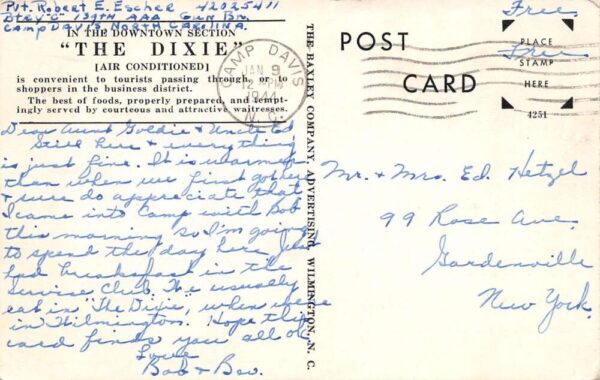 Pvt. Robert E. Escher 42025411
Btry "C" 139TH AAA Gun Bn.
Camp Davis North Carolina.
IN THE DOWNTOWN SECTION
"THE DIXIE"
[AIR CONDITIONED]
is convenient to tourists passing through, or to
shoppers in the business district.
The best of foods, properly prepared, and tempt-
ingly served by courteous and attractive waitresses.
Dear Aunt Goldie & Uncle Ed
Still here & everything
is just fine. It is warmer
than when we first got here
& sure do appreciate that
I came into Camp with Bob
this morning so I'm going
to spend the day here. Just
had breakfast in the
Service Club. We usually
eat in "The Dixie", when we're
in Wilmington. Hope this
card finds you all ok.
Love
Bob & Bev.
THE BAXLEY COMPANY, ADVERTISING, WILMINGTON, N. C.
CAMP DAVIS
JAN 9
12 PM
1944
N.C.
POST CARD
Free
Free
PLACE
STAMP
HERE
4251
Mr. & Mrs. Ed. Hetzel
99 Rose Ave.
Gardenville
New York.